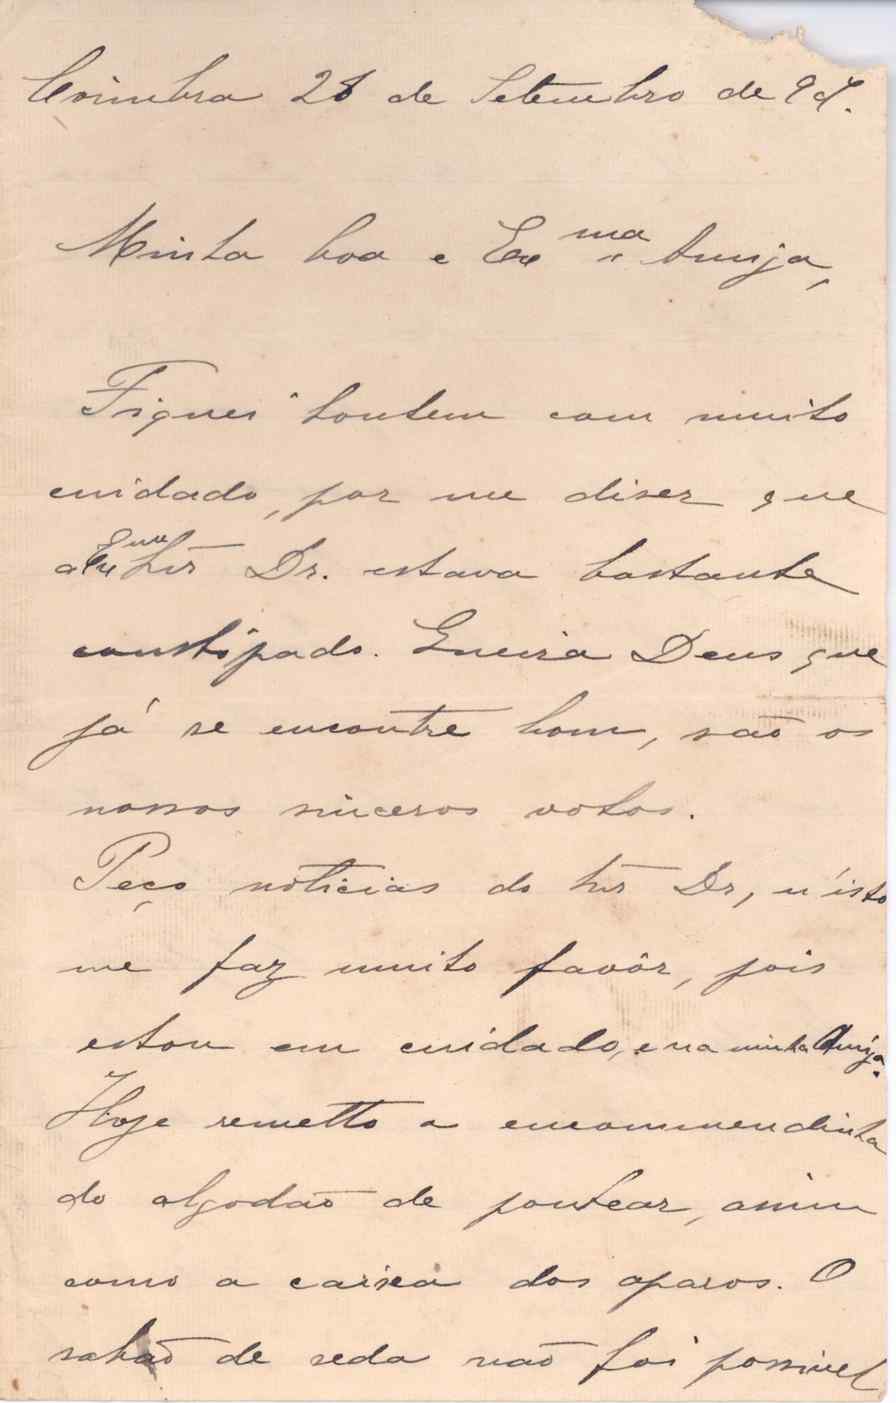 Coimbra 28 de Setembro de 97.
Minha boa e Ex.ma Amiga,
Fiquei hontem com muito
cuidado, por me diser que
o Exmo Snr Dr. estava bastante
constipado. Queira Deus que
já se encontre bom, são os
nossos sinceros votos.
Peço noticias do Snr Dr, n'isto
me faz muito favôr, pois
estou em cuidado, e na minha Amiga.
Hoje remetto a encommendinha
do algodão de pontear, assim
como a caixa dos aparos. O
sabão de seda não foi possivel